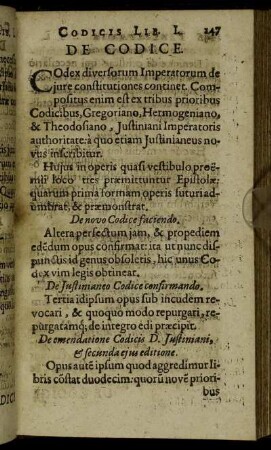 CODICIS LIB. I. 247
DE CODICE.
COdex diversorum Imperatorum de
jure constitutiones continet. Com-
positus enim est ex tribus prioribus
Codicibus, Gregoriano, Hermogeniano,
& Theodosiano, Justiniani Imperatoris
authoritate: à quo etiam Justinianeus no-
vus inscribitur.
Hujus in operis quasi vestibulo proœ-
mii loco tres præmittuntur Epistolæ:
quarum prima formam operis futuri ad-
umbrat, & præmonstrat.
De novo Codice faciendo.
Altera perfectum jam, & propediem
edēdum opus confirmat: ita ut nunc dis-
punctis id genus obsoletis, hic unus Co-
dex vim legis obtineat.
De Justinianeo Codice confirmando.
Tertia idipsum opus sub incudem re-
vocari, & quoquo modo repurgari, re-
purgatamq; de integro edi præcipit.
De emendatione Codicis D. Justiniani,
& secunda ejus editione.
Opus autē ipsum quod aggredimur li-
bris cōstat duodecim: quorū novē priori-
bus